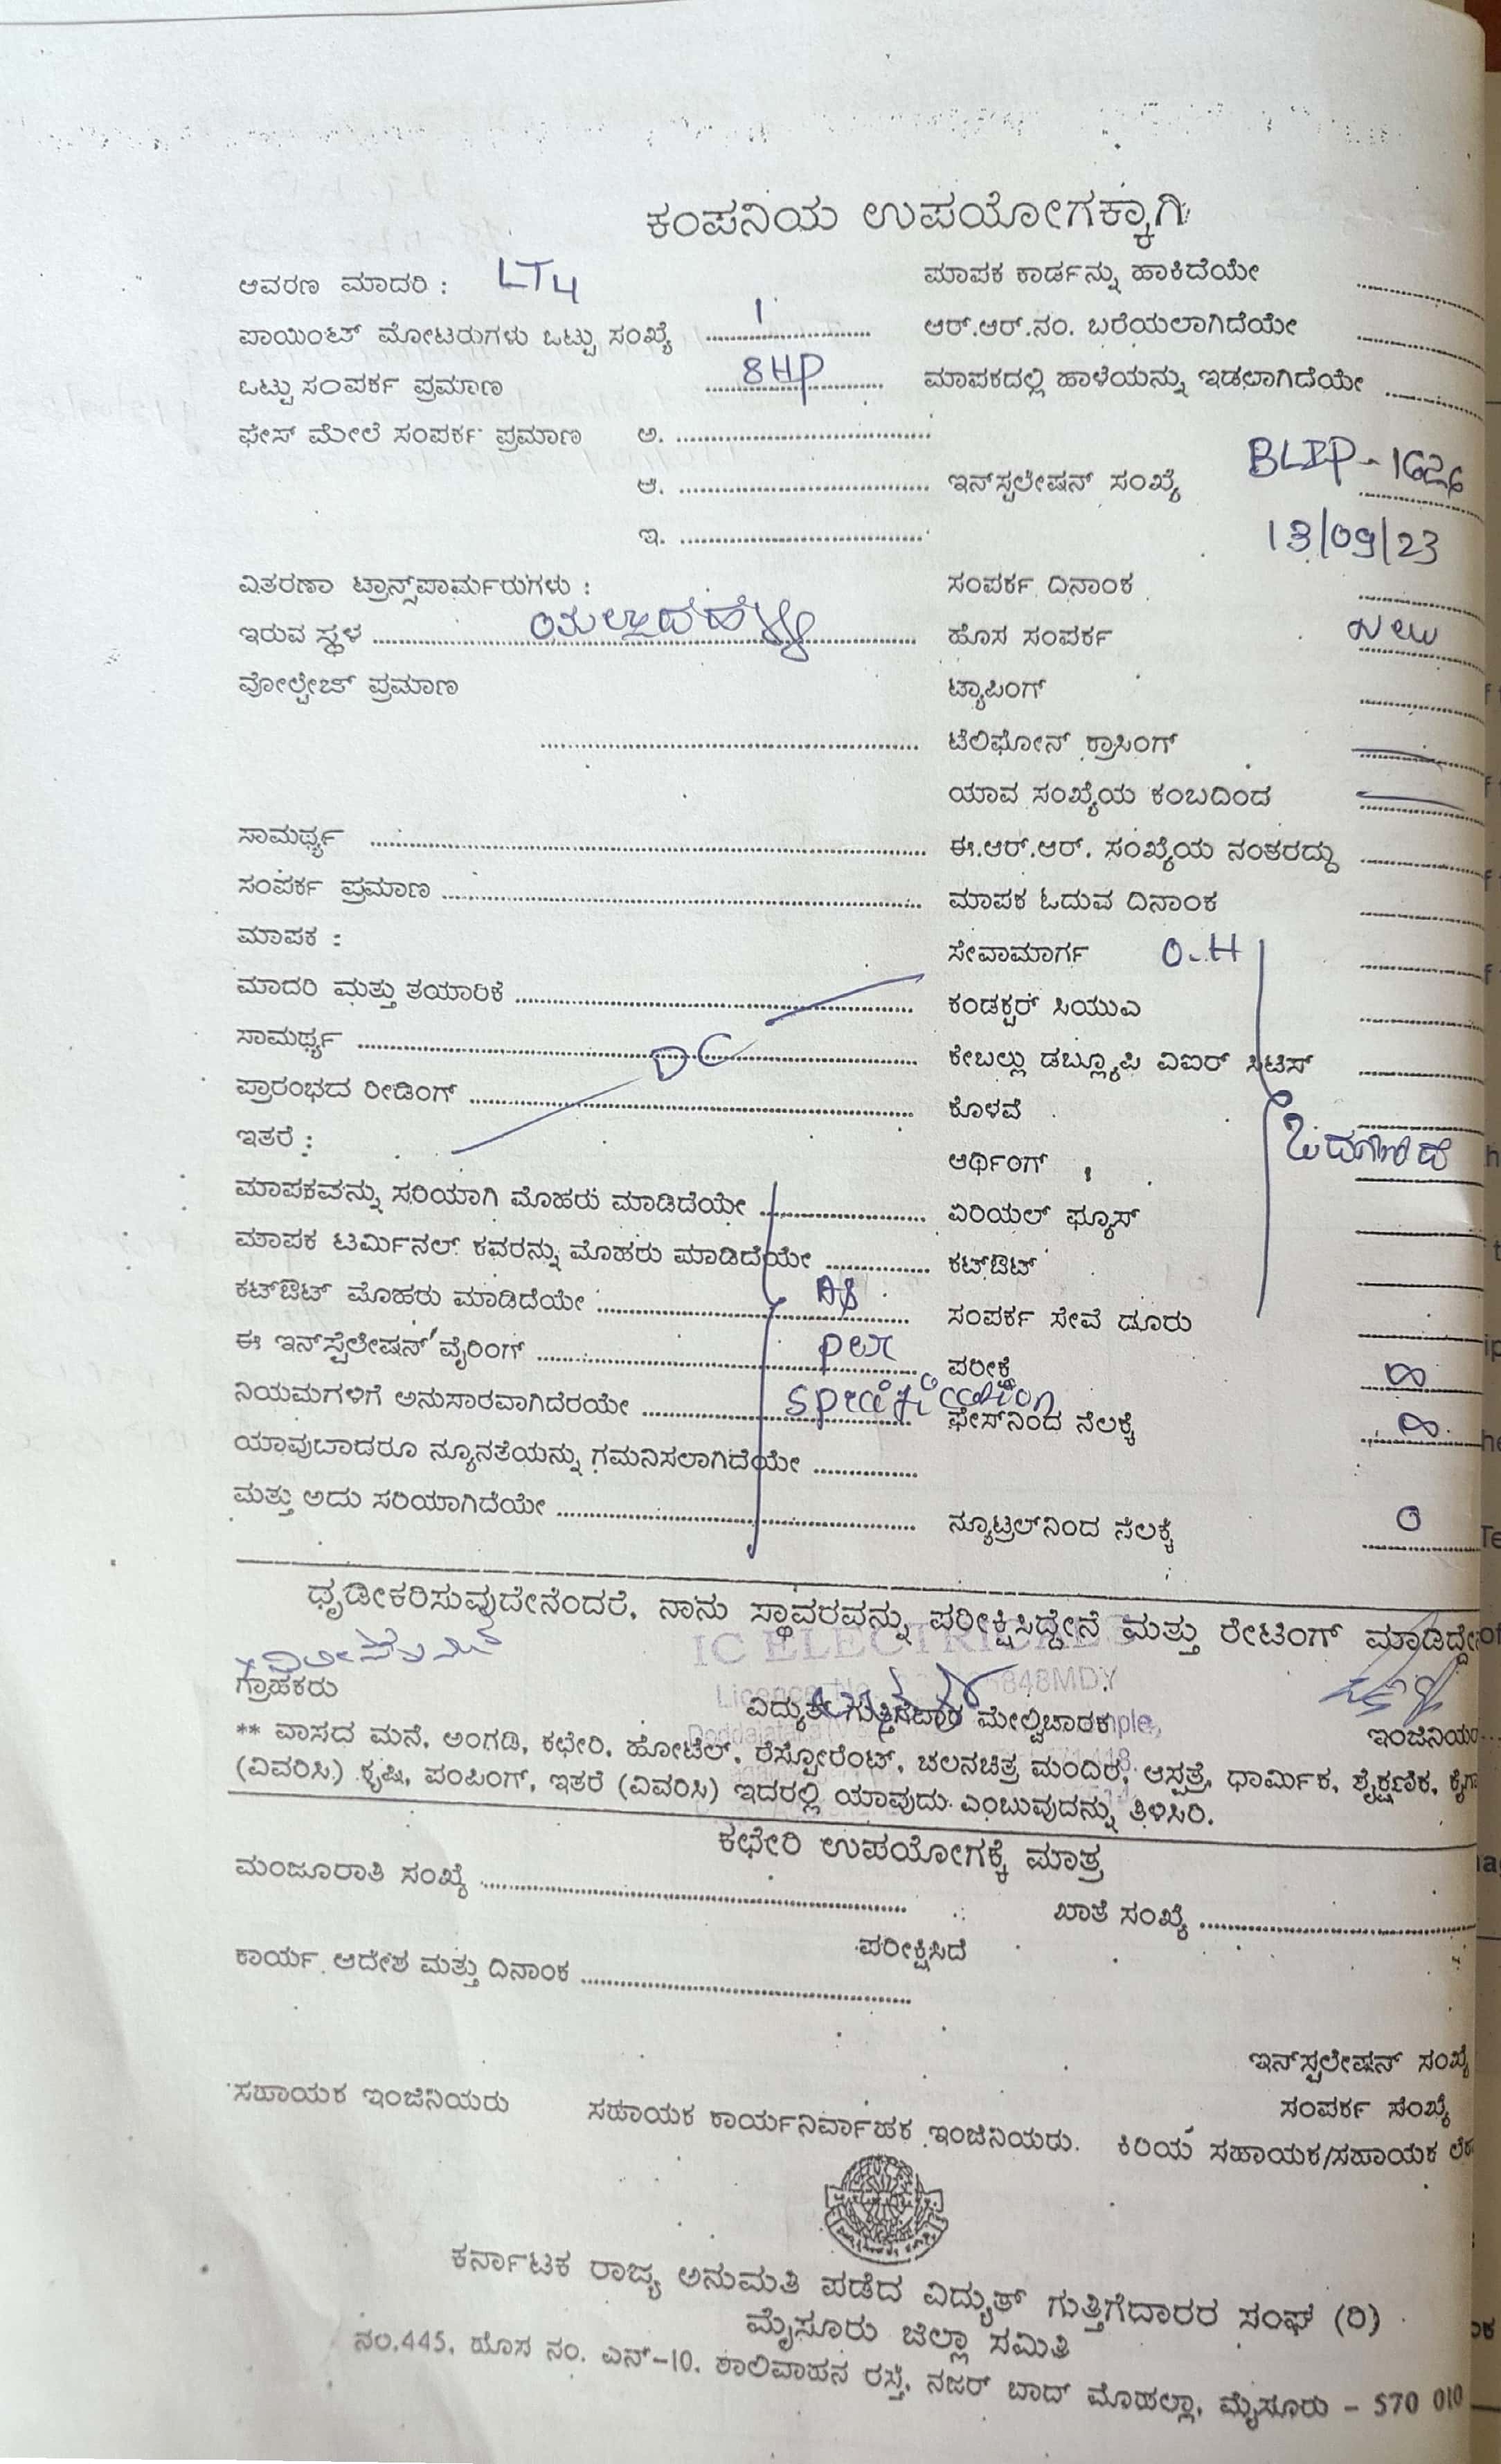 ಕಂಪನಿಯ ಉಪಯೋಗಕ್ಕಾಗಿ
ಆವರಣ ಮಾದರಿ : LT4
ಮಾಪಕ ಕಾರ್ಡನ್ನು ಹಾಕಿದೆಯೇ
ಪಾಯಿಂಟ್ ಮೋಟರುಗಳು ಒಟ್ಟು ಸಂಖ್ಯೆ 1
ಆರ್.ಆರ್.ನಂ. ಬರೆಯಲಾಗಿದೆಯೇ
ಒಟ್ಟು ಸಂಪರ್ಕ ಪ್ರಮಾಣ 8HP
ಮಾಪಕದಲ್ಲಿ ಹಾಳೆಯನ್ನು ಇಡಲಾಗಿದೆಯೇ
ಫೇಸ್ ಮೇಲೆ ಸಂಪರ್ಕ ಪ್ರಮಾಣ ಅ.
ಆ.
ಇನ್‌ಸ್ಪಲೇಷನ್ ಸಂಖ್ಯೆ BLIP-1626
ಇ.
13/09/23
ವಿತರಣಾ ಟ್ರಾನ್ಸ್‌ಪಾರ್ಮರುಗಳು :
ಸಂಪರ್ಕ ದಿನಾಂಕ
ಇರುವ ಸ್ಥಳ
ಹೊಸ ಸಂಪರ್ಕ
ವೋಲ್ಟೇಜ್ ಪ್ರಮಾಣ
ಟ್ಯಾಪಿಂಗ್
ಟೆಲಿಫೋನ್ ಕ್ರಾಸಿಂಗ್
ಯಾವ ಸಂಖ್ಯೆಯ ಕಂಬದಿಂದ
ಸಾಮರ್ಥ್ಯ
ಈ.ಆರ್.ಆರ್. ಸಂಖ್ಯೆಯ ನಂತರದ್ದು
ಸಂಪರ್ಕ ಪ್ರಮಾಣ
ಮಾಪಕ ಓದುವ ದಿನಾಂಕ
ಮಾಪಕ :
ಸೇವಾಮಾರ್ಗ O.H
ಮಾದರಿ ಮತ್ತು ತಯಾರಿಕೆ
ಕಂಡಕ್ಟರ್ ಸಿಯುವಿ
ಸಾಮರ್ಥ್ಯ DC
ಕೇಬಲ್ಲು ಡಬ್ಲ್ಯೂಪಿ ವಿಐರ್ ಸಿಟಿಸ್
ಪ್ರಾರಂಭದ ರೀಡಿಂಗ್
ಕೊಳವೆ
ಇತರೆ :
ಆರ್ಥಿಂಗ್
ಮಾಪಕವನ್ನು ಸರಿಯಾಗಿ ಮೊಹರು ಮಾಡಿದೆಯೇ
ಏರಿಯಲ್ ಫ್ಯೂಸ್
ಮಾಪಕ ಟರ್ಮಿನಲ್ ಕವರನ್ನು ಮೊಹರು ಮಾಡಿದೆಯೇ
ಕಟ್‌ಔಟ್
ಕಟ್‌ಔಟ್ ಮೊಹರು ಮಾಡಿದೆಯೇ As
ಸಂಪರ್ಕ ಸೇವೆ ದೂರು
ಈ ಇನ್‌ಸ್ಪೆಲೇಷನ್ ವೈರಿಂಗ್ per
ಪರೀಕ್ಷೆ ∞
ನಿಯಮಗಳಿಗೆ ಅನುಸಾರವಾಗಿದೆರಯೇ specification
ಫೇಸ್‌ನಿಂದ ನೆಲಕ್ಕೆ ∞
ಯಾವುದಾದರೂ ನ್ಯೂನತೆಯನ್ನು ಗಮನಿಸಲಾಗಿದೆಯೇ
ಮತ್ತು ಅದು ಸರಿಯಾಗಿದೆಯೇ
ನ್ಯೂಟ್ರಲ್‌ನಿಂದ ನೆಲಕ್ಕೆ 0
ಧೃಡೀಕರಿಸುವುದೇನೆಂದರೆ, ನಾನು ಸ್ಥಾವರವನ್ನು ಪರೀಕ್ಷಿಸಿದ್ದೇನೆ ಮತ್ತು ರೇಟಿಂಗ್ ಮಾಡಿದ್ದೇ
IC ELECTRICALS
848MDY
ಗ್ರಾಹಕರು
ವಿದ್ಯುತ್ ಗುತ್ತಿಗೆದಾರ ಮೇಲ್ವಿಚಾರಕ
ಇಂಜಿನಿಯ
** ವಾಸದ ಮನೆ, ಅಂಗಡಿ, ಕಛೇರಿ, ಹೋಟೆಲ್, ರೆಸ್ಟೋರೆಂಟ್, ಚಲನಚಿತ್ರ ಮಂದಿರ, ಆಸ್ಪತ್ರೆ, ಧಾರ್ಮಿಕ, ಶೈಕ್ಷಣಿಕ, ಕೈಗಾ
(ವಿವರಿಸಿ) ಕೃಷಿ, ಪಂಪಿಂಗ್, ಇತರೆ (ವಿವರಿಸಿ) ಇದರಲ್ಲಿ ಯಾವುದು ಎಂಬುವುದನ್ನು ತಿಳಿಸಿರಿ.
ಕಛೇರಿ ಉಪಯೋಗಕ್ಕೆ ಮಾತ್ರ
ಮಂಜೂರಾತಿ ಸಂಖ್ಯೆ
ಖಾತೆ ಸಂಖ್ಯೆ
ಪರೀಕ್ಷಿಸಿದೆ
ಕಾರ್ಯ ಆದೇಶ ಮತ್ತು ದಿನಾಂಕ
ಇನ್‌ಸ್ಪಲೇಷನ್ ಸಂಖ್ಯೆ
ಸಂಪರ್ಕ ಸಂಖ್ಯೆ
ಸಹಾಯಕ ಇಂಜಿನಿಯರು ಸಹಾಯಕ ಕಾರ್ಯನಿರ್ವಾಹಕ ಇಂಜಿನಿಯರು. ಕಿರಿಯ ಸಹಾಯಕ/ಸಹಾಯಕ ಲೆಕ
ಕರ್ನಾಟಕ ರಾಜ್ಯ ಅನುಮತಿ ಪಡೆದ ವಿದ್ಯುತ್ ಗುತ್ತಿಗೆದಾರರ ಸಂಘ (ರಿ)
ಮೈಸೂರು ಜಿಲ್ಲಾ ಸಮಿತಿ
ನಂ.445, ಹೊಸ ನಂ. ಎನ್-10, ಶಾಲಿವಾಹನ ರಸ್ತೆ, ನಜರ್ ಬಾದ್ ಮೊಹಲ್ಲಾ, ಮೈಸೂರು - 570 010